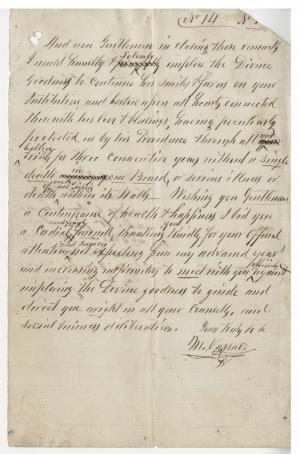 No 14
And now Gentlemen in closing these remarks
I would humbly & solemnly implore the Divine
Goodness to continue his smiles & favors on your
Institution, and bestow upon all hearts connected
therewith his love & blessings, having peculiarly
protected us by his Providence through all our
College
trials for three Consecutive years without a Single
death in our Board, or serious illness or
death within its Walls – Wishing you Gentlemen
a Continuance of health & happiness I bid you
a Cordial farewell thanking you kindly for your Official
attention not expecting from my advanced years
and increasing infirmities to meet with you again
imploring the Divine goodness to guide and
direct you aright in all your Counsels, and
social business deliberations.
Yours truly
M. Vassar